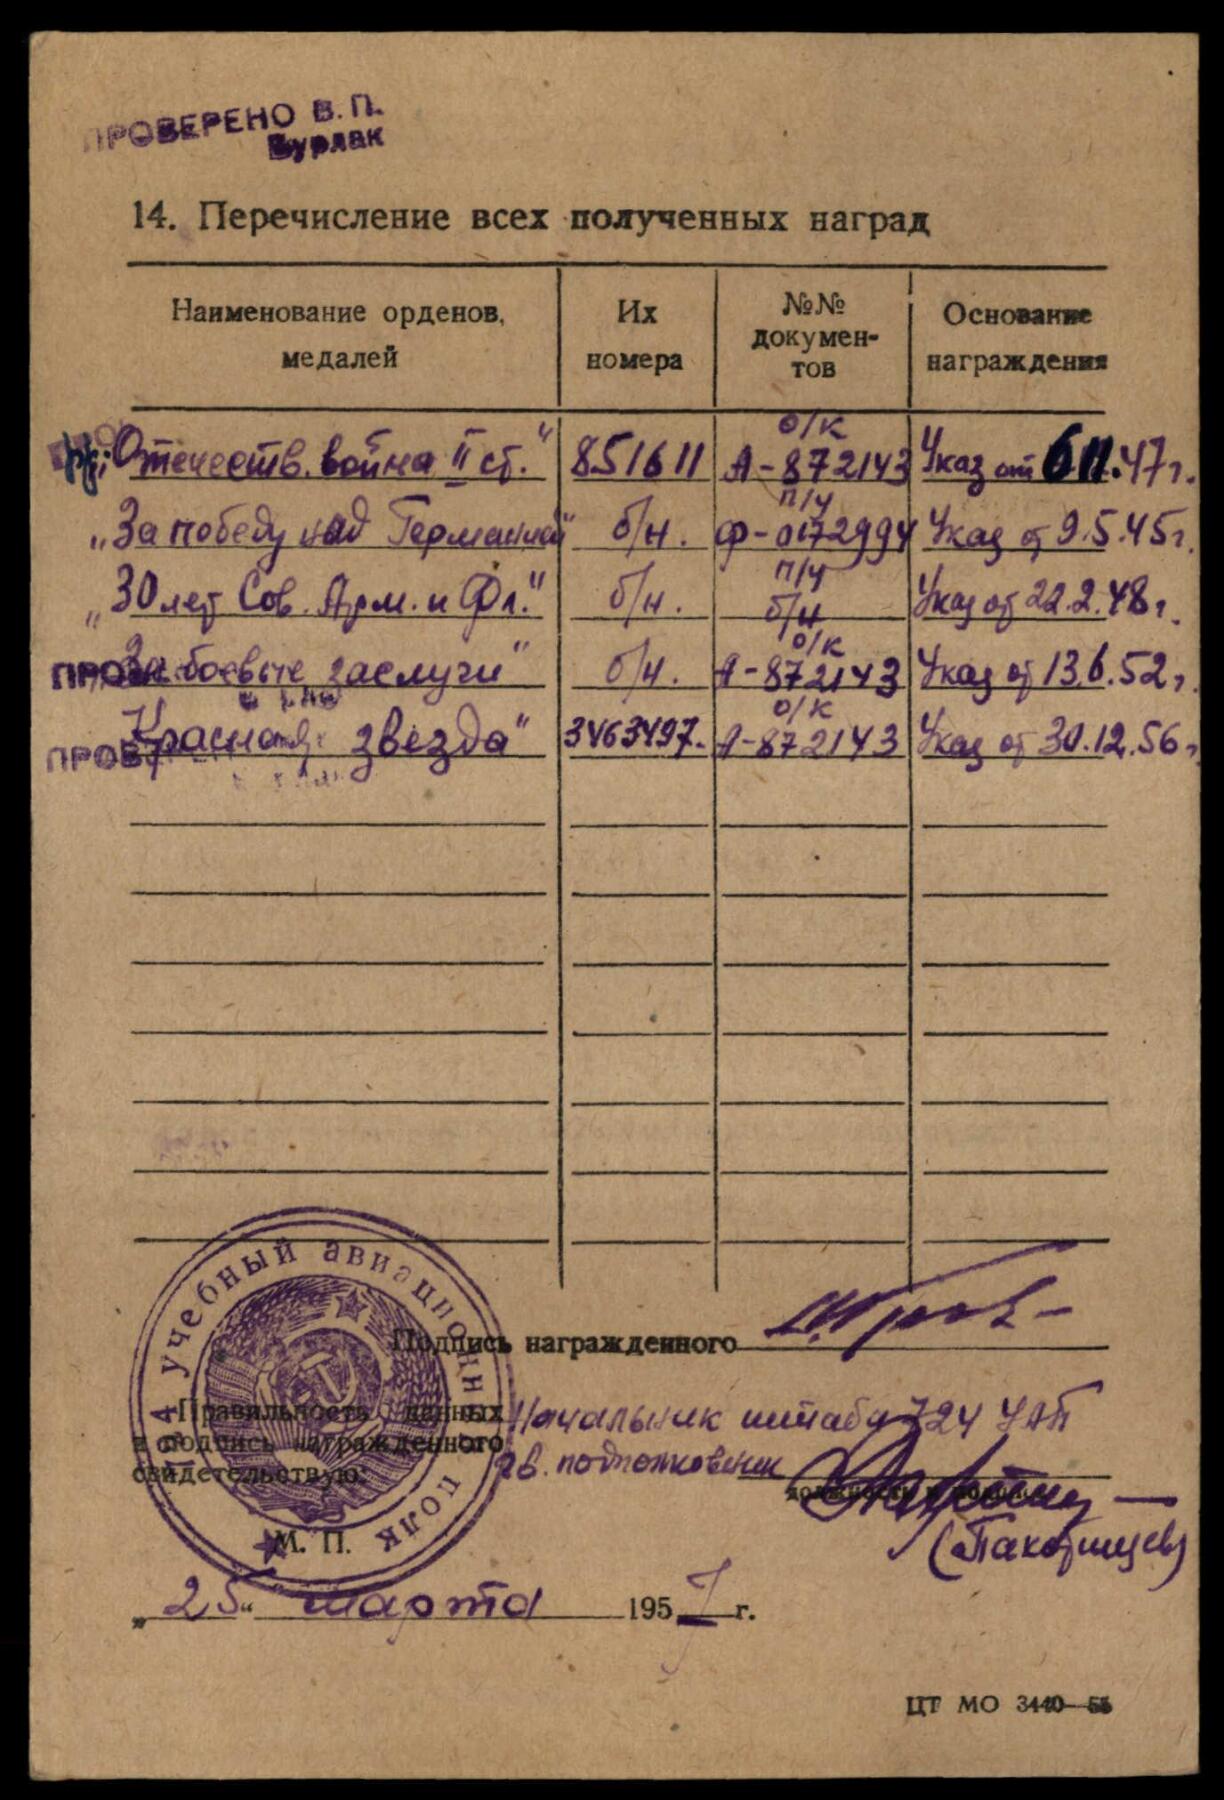 ПРОВЕРЕНО В. П.
Бурлак
14. Перечисление всех полученных наград
Наименование орденов, медалей
Их номера
№№ докумен-тов
Основание награждения
„Отечеств. война II ст.“ 851611 о/к А-872143 Указ от 6.11.47г.
„За победу над Германией“ б/н. п/у Ф-0172994 Указ от 9.5.45г.
„30 лет Сов. Арм. и Фл.“ б/н. п/у б/н Указ от 22.2.48г.
ПРОВ
„За боевые заслуги“ б/н. о/к А-872143 Указ от 13.6.52г.
ПРОВЕРЕН
„Красная звезда“ 3463497. о/к А-872143 Указ от 30.12.56г.
Подпись награжденного
Правильность данных
и подпись награжденного
свидетельствую:
Начальник штаба 724 УАП
гв. подполковник
должность и подпись
М. П.
учебный авиационный полк
„25“ марта 1957 г.
ЦТ МО 3440—55